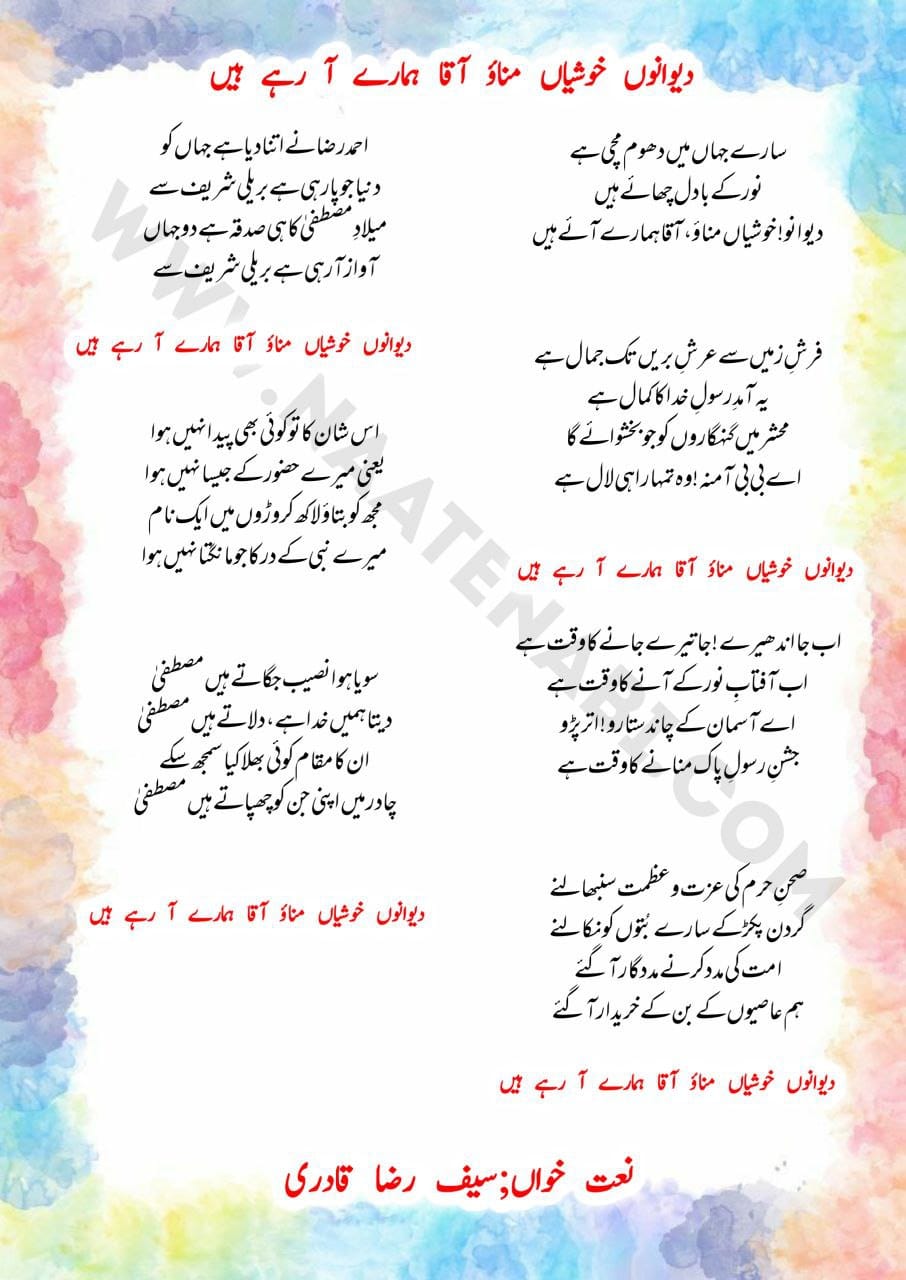 دیوانوں خوشیاں مناؤ آقا ہمارے آ رہے ہیں
سارے جہاں میں دھوم مچی ہے
نور کے بادل چھائے ہیں
دیوانو! خوشیاں مناؤ، آقا ہمارے آئے ہیں
فرشِ زمیں سے عرشِ بریں تک جمال ہے
یہ آمدِ رسولِ خدا کا کمال ہے
محشر میں گنہگاروں کو جو بخشوائے گا
اے بی بی آمنہ! وہ تمہارا ہی لال ہے
دیوانوں خوشیاں مناؤ آقا ہمارے آ رہے ہیں
اب جا اندھیرے! جا تیرے جانے کا وقت ہے
اب آفتابِ نور کے آنے کا وقت ہے
اے آسمان کے چاند ستارو! اتر پڑو
جشنِ رسولِ پاک منانے کا وقت ہے
صحنِ حرم کی عزت و عظمت سنبھالنے
گردن پکڑ کے سارے بُتوں کو نکالنے
امت کی مدد کرنے مددگار آ گئے
ہم عاصیوں کے بن کے خریدار آ گئے
دیوانوں خوشیاں مناؤ آقا ہمارے آ رہے ہیں
احمد رضا نے اتنا دیا ہے جہاں کو
دنیا جو پا رہی ہے بریلی شریف سے
میلادِ مصطفیٰ کا ہی صدقہ ہے دو جہاں
آواز آ رہی ہے بریلی شریف سے
دیوانوں خوشیاں مناؤ آقا ہمارے آ رہے ہیں
اس شان کا تو کوئی بھی پیدا نہیں ہوا
یعنی میرے حضور کے جیسا نہیں ہوا
مجھ کو بتاؤ لاکھ کروڑوں میں ایک نام
میرے نبی کے در کا جو مانگتا نہیں ہوا
سویا ہوا نصیب جگاتے ہیں مصطفیٰ
دیتا ہمیں خدا ہے، دلاتے ہیں مصطفیٰ
ان کا مقام کوئی بھلا کیا سمجھ سکے
چادر میں اپنی جن کو چھپاتے ہیں مصطفیٰ
دیوانوں خوشیاں مناؤ آقا ہمارے آ رہے ہیں
نعت خواں;سیف رضا قادری
WWW.NAATENABI.COM